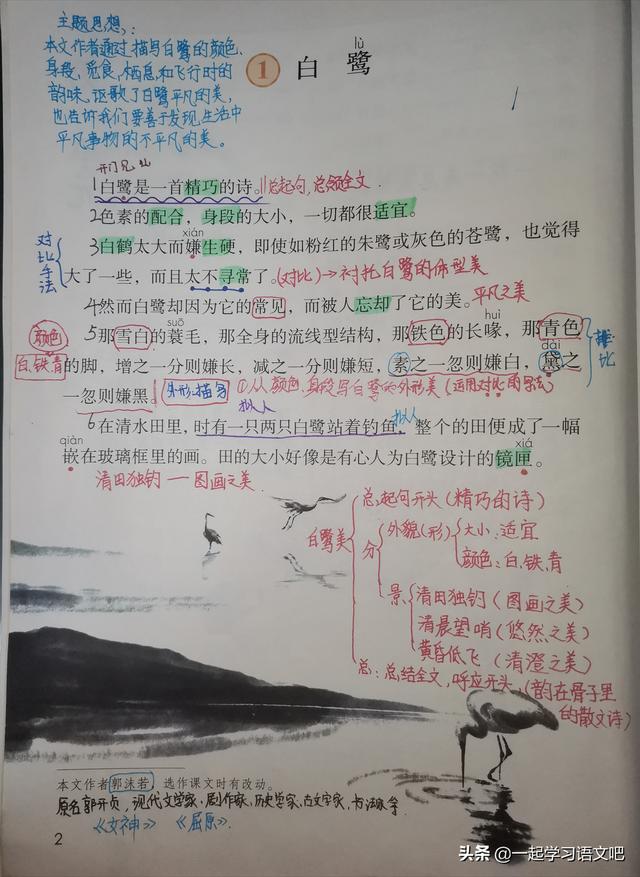 主题思想:
本文作者通过描写白鹭的颜色、
身段、觅食、栖息和飞行时的
韵味,讴歌了白鹭平凡的美,
也告诉我们要善于发现生活中
平凡事物的不平凡的美。
lù
1 白鹭
开门见山
1白鹭是一首精巧的诗。 总起句,总领全文
2色素的配合,身段的大小,一切都很适宜。
xián
3白鹤太大而嫌生硬,即使如粉红的朱鹭或灰色的苍鹭,也觉得
大了一些,而且太不寻常了。 (对比)→衬托白鹭的体型美
对比手法
4然而白鹭却因为它的常见,而被人忘却了它的美。 平凡之美
suō huì
5那雪白的蓑毛,那全身的流线型结构,那铁色的长喙,那青色
颜色
白、铁、青
dài
的脚,增之一分则嫌长,减之一分则嫌短,素之一忽则嫌白,黛之
排比
一忽则嫌黑。 外形描写 ①从颜色、身段写白鹭的外形美(运用对比的写法)
拟人 拟人
6在清水田里,时有一只两只白鹭站着钓鱼,整个的田便成了一幅
qiàn xiá
嵌在玻璃框里的画。田的大小好像是有心人为白鹭设计的镜匣。
清田独钓——图画之美
白鹭美
总起句开头(精巧的诗)
分
外貌(形)
大小:适宜
颜色:白、铁、青
景
清田独钓(图画之美)
清晨望哨(悠然之美)
黄昏低飞(清澄之美)
总:总结全文,呼应开头,(韵在骨子里
的散文诗)
本文作者郭沫若,选作课文时有改动。
原名郭开贞,现代文学家、剧作家、历史学家、古文字家、书法家等
《女神》 《屈原》
2
头条 @一起学习语文吧